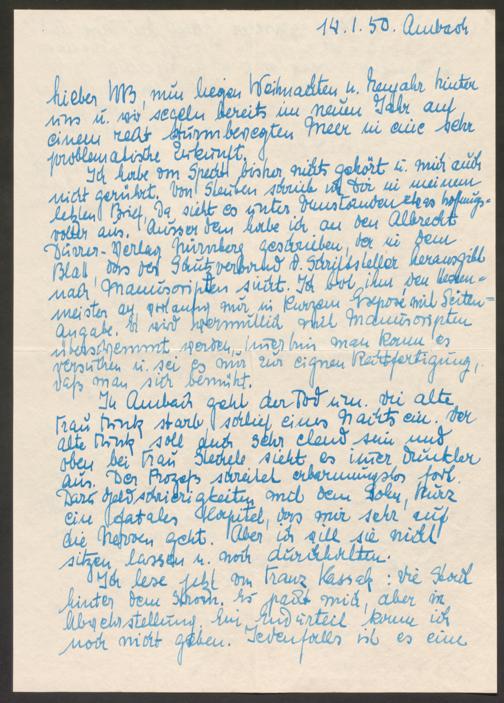 14.1.50. Ambach
Lieber WB, nun liegen Weihnachten u. Neujahr hinter
uns u. wir segeln bereits im neuen Jahr auf
einem recht sturmbewegten Meer in eine sehr
problematische Zukunft.
Ich habe von Specht bisher nichts gehört u. mich auch
nicht gerührt. Von Steuben schrieb ich Dir in meinem
letzten Brief. Da sieht es unter Umständen etwas hoffnungs-
voller aus. Ausserdem habe ich an den Albrecht
Dürrer-Verlag Nürnberg geschrieben, der in dem
Blatt, das der Schutzverband d. Schriftsteller herausgibt
nach Manuscripten sucht. Ich bot ihm den
meister an, vorläufig nur in kurzem Exposé mit Seiten-
angabe. Er wird vermutlich mit Manuscripten
überschwemmt werden, immerhin man kann es
versuchen u. sei es nur zur eignen Rechtfertigung,
daß man sich bemüht.
In Ambach geht der Tod um. Die alte
Frau starb, schlief eines Nachts ein. Der
alte soll auch sehr elend sein und
oben bei Frau sieht es immer dunkler
aus. Der Prozeß schreitet erbarmungslos fort.
Dazu Geldschwierigkeiten mit dem Sohn, kurz
ein fatales Kapitel, das mir sehr auf
die Nerven geht. Aber ich will sie nicht
sitzen lassen u. noch durchhalten.
Ich lese jetzt von Franz Kassak: Die Stadt
hinter dem Strom. Es packt mich, aber in
Abwehrstellung. Ein Endurteil kann ich
noch nicht geben. Jedenfalls ist es eine